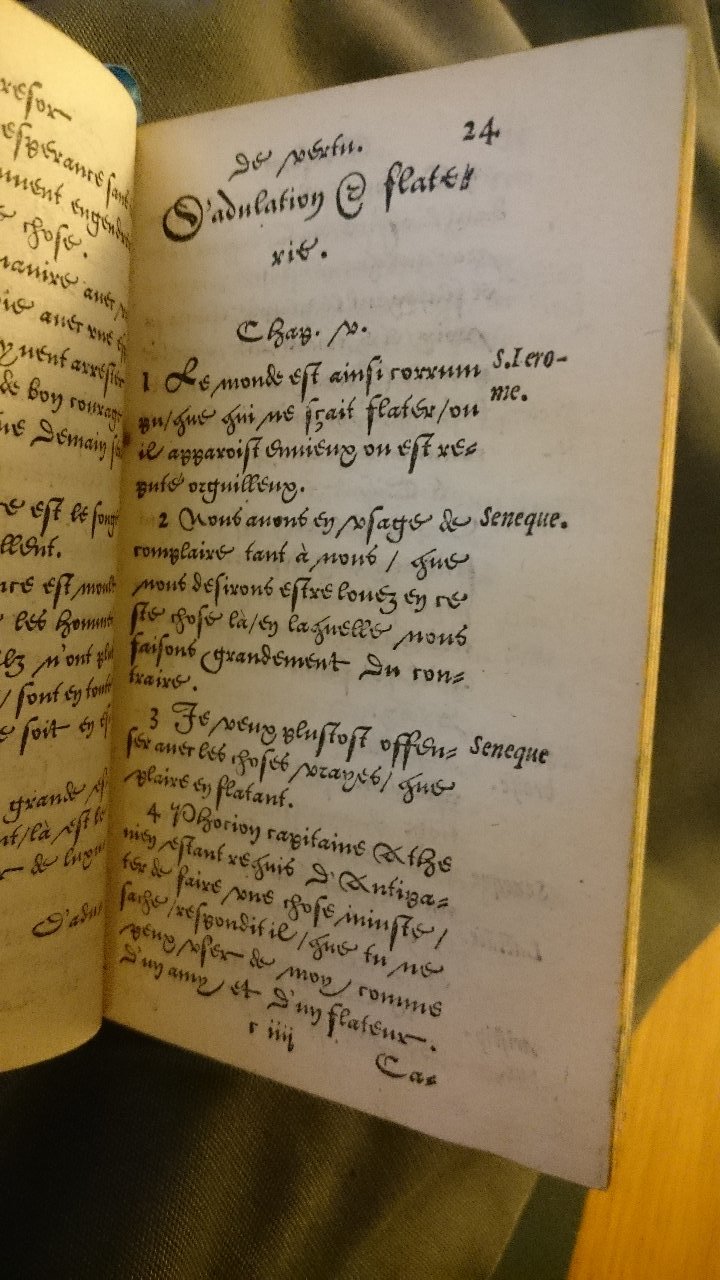 resor
esperance sans
ment engendre
chose.
maniere avec
avec vne
vuent arrester
de bon courage
ne Demain
est le songe
llent.
nce est
les hommes
lz n'ont plus
/ sont en toute
soit en
grande
nt/là est le
de luxure
D'adu-
de vertu.
24.
D'adulation & flate-
rie.
Chap. v.
1 Le monde est ainsi corrum
pu/que qui ne sçait flater/ou
il apparoist enuieux ou est re-
puté orguilleux.
S.Iero-
me.
2 Nous auons en vsage de
complaire tant à nous / que
nous desirons estre louez en ce
ste chose là/en laquelle nous
faisons grandement du con-
traire.
Seneque.
3 Je veux plustost offen-
ser auec les choses vrayes/ que
plaire en flatant.
Seneque
4 Phocion capitaine Athe
nien estant requis d'Antipa-
ter de faire vne chose iniuste /
sache /respondit il /que tu ne
peux vser de moy comme
d'un amy et d'un flateur.
c iiij
Ca-